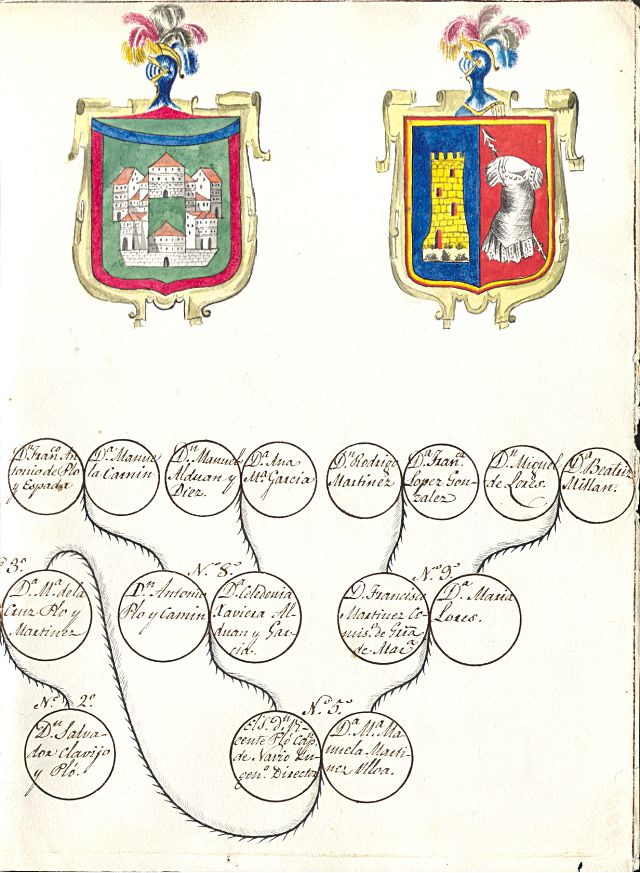 Dⁿ Franᶜᵒ An
tonio de Plo
y Espada
Dᵃ Manue
la Camin
Dⁿ Manuel
Alduan y
Diez.
Dᵃ Ana
Mᵃ Garcia
Dⁿ Rodrigo
Martinez
Dᵃ Franᶜᵃ
Lopez Gon-
zalez
Dⁿ Miguel
de Lores.
Dᵃ Beatriz
Millan.
3º
Dᵃ Mᵃ de la
Cruz Plo y
Martinez
Nº 8º
Dⁿ Antonio
Plo y Camin
Dᵃ Celedonia
Xaviera Al-
duan y Gar-
cia.
Nº 9º
D. Francisco
Martinez Co-
mis.º de Grrᵃ
de Marᵃ
Dᵃ Maria
Lores.
Nº 2º
Dⁿ Salva-
dor Clavijo
y Pló.
Nº 5º
El S. Dⁿ Vi-
cente Plo Capⁿ
de Navio Yn-
genº Director
Dᵃ Mᵃ Ma-
nuela Marti-
nez Ulloa.